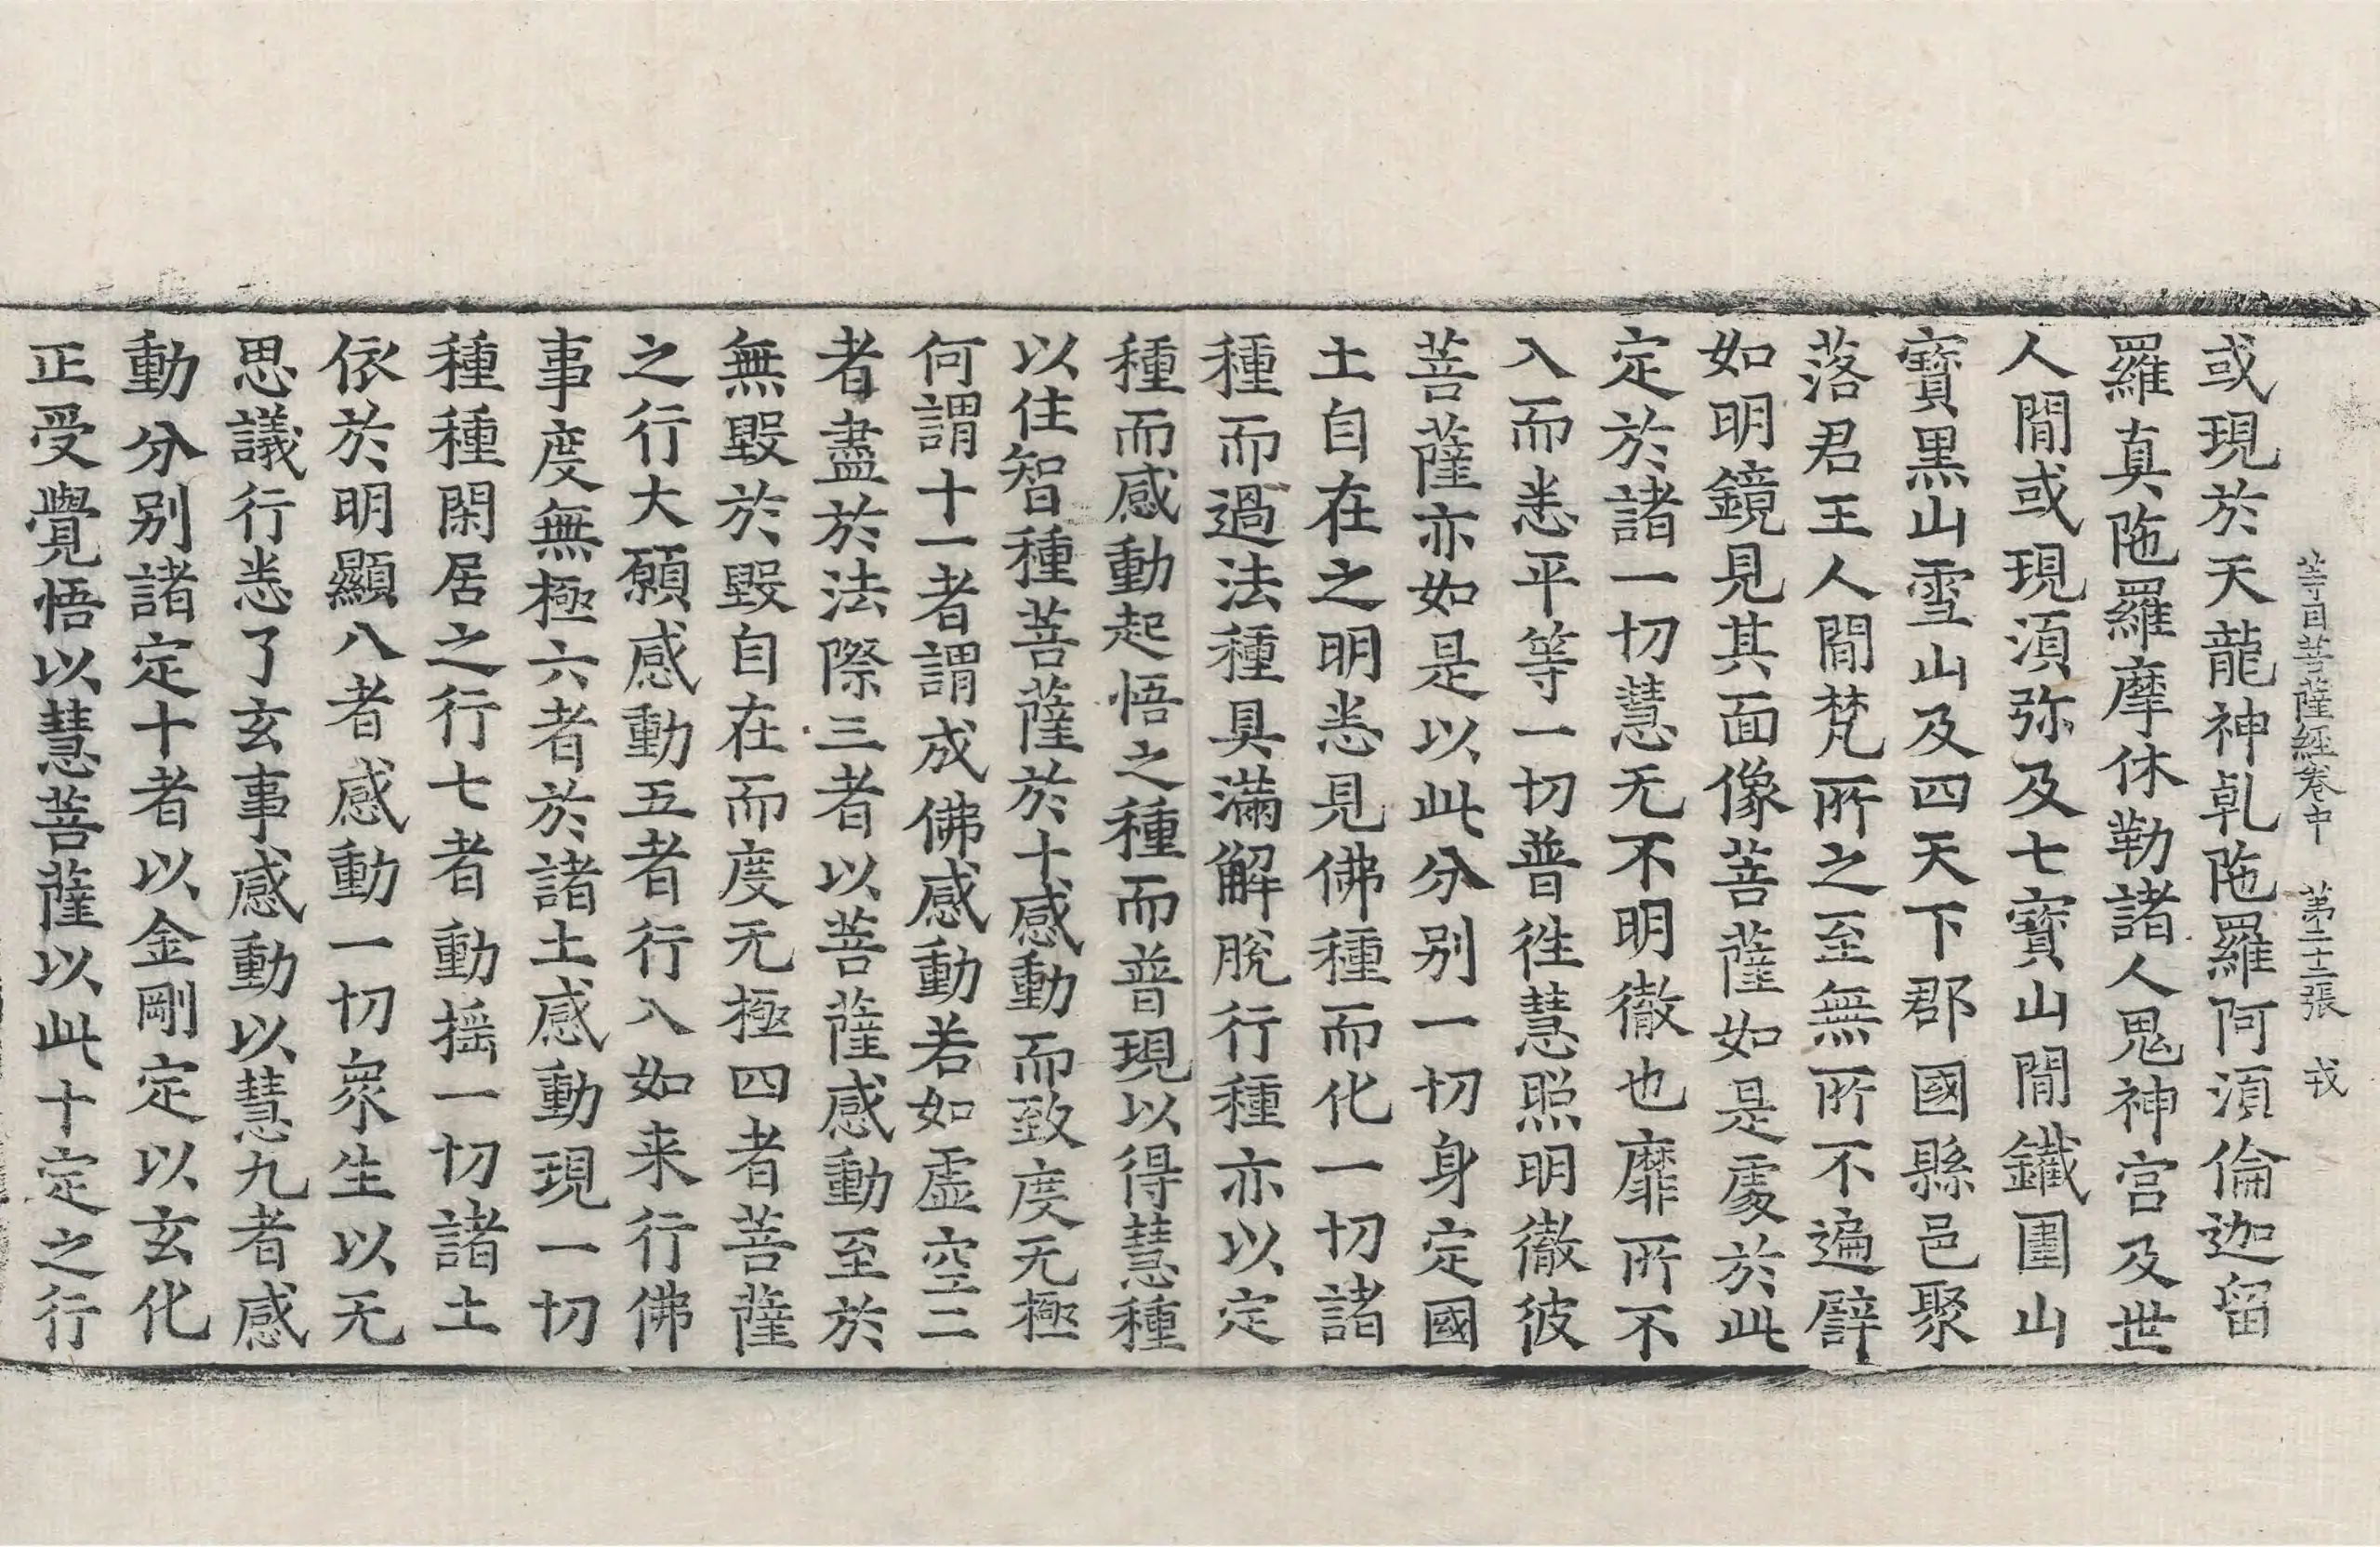 等目菩薩經卷中 第二十二張 戎
或現於天龍神乹陁羅阿湏倫迦留
羅真陁羅摩休勒諸人鬼神宫及世
人閒或現湏弥及七寶山閒鐵圍山
寶黒山雪山及四天下郡國縣邑聚
落君王人閒梵所之至無所不遍譬
如明鏡見其面像菩薩如是處於此
定於諸一切慧无不明徹也靡所不
入而悉平等一切普徃慧照明徹彼
菩薩亦如是以此分别一切身定國
土自在之明悉見佛種而化一切諸
種而過法種具滿解脫行種亦以定
種而感動起悟之種而普現以得慧種
以住智種菩薩於十感動而致度无極
何謂十一者謂成佛感動若如虛空二
者盡於法際三者以菩薩感動至於
無毀於毀自在而度无極四者菩薩
之行大願感動五者行入如来行佛
事度無極六者於諸土感動現一切
種種閑居之行七者動揺一切諸土
依於明顯八者感動一切衆生以无
思議行悉了玄事感動以慧九者感
動分别諸定十者以金剛定以玄化
正受覺悟以慧菩薩以此十定之行